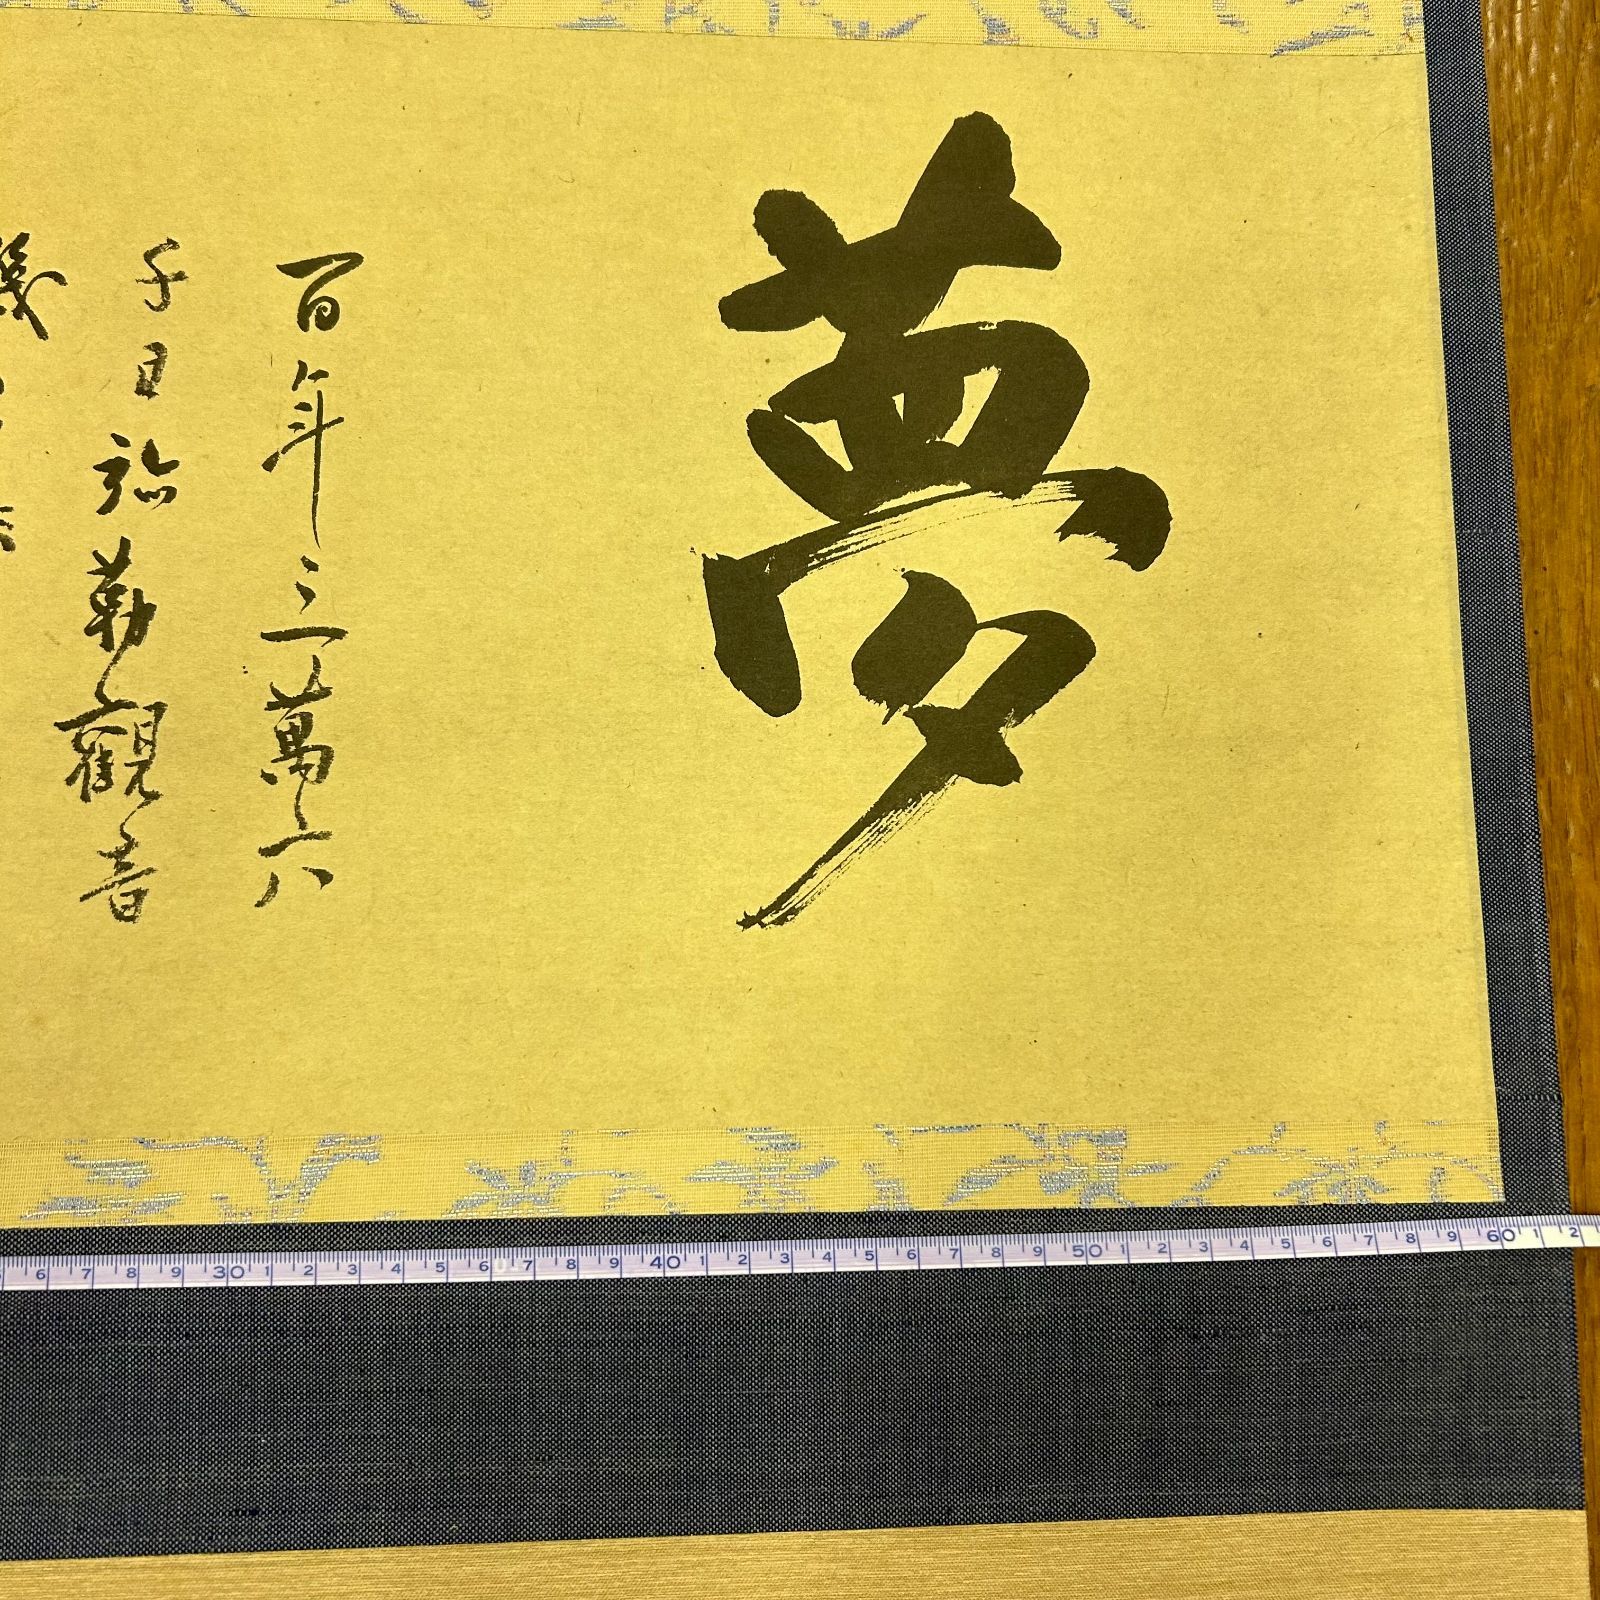 夢
百年三萬六
千日弥勒觀音
幾
6 7 8 9 30 1 2 3 4 5 6 7 8 9 40 1 2 3 4 5 6 7 8 9 50 1 2 3 4 5 6 7 8 9 60 1 2